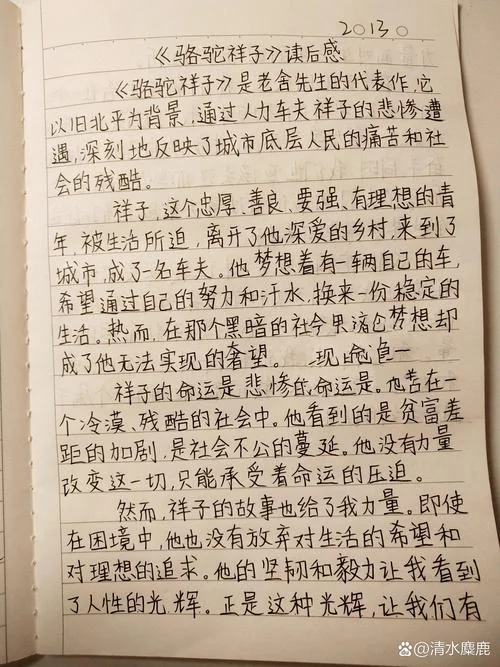 20130
《骆驼祥子》读后感
《骆驼祥子》是老舍先生的代表作,它
以旧北平为背景,通过人力车夫祥子的悲惨遭
遇,深刻地反映了城市底层人民的痛苦和社
会的残酷。
祥子,这个忠厚、善良、要强、有理想的青
年,被生活所迫,离开了他深爱的乡村,来到了
城市,成了一名车夫。他梦想着有一辆自己的车,
希望通过自己的努力和汗水,换来一份稳定的
生活。热而,在那个黑暗的社会里,梦想却
成了他无法实现的奢望。
祥子的命运是悲惨的命运是。他苦在一
个冷漠、残酷的社会中。他看到的是贫富差
距的加剧,是社会不公的蔓延。他没有力量
改变这一切,只能承受着命运的压迫。
然而,祥子的故事也给了我力量。即使
在困境中,他也没有放弃对生活的希望和
对理想的追求。他的坚韧和毅力让我看到
了人性的光辉。正是这种光辉,让我们有
@清水麋鹿